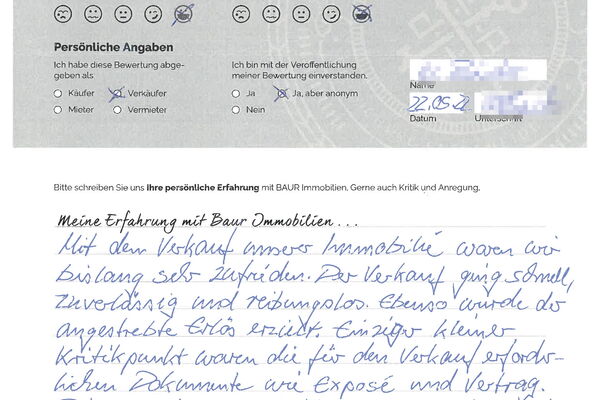 Persönliche Angaben
Ich habe diese Bewertung abge-
geben als
Käufer
Verkäufer
Mieter
Vermieter
Ich bin mit der Veröffentlichung
meiner Bewertung einverstanden.
Ja
Ja, aber anonym
Nein
Name
22.05.22
Datum
Unterschrift
Bitte schreiben Sie uns Ihre persönliche Erfahrung mit BAUR Immobilien. Gerne auch Kritik und Anregung.
Meine Erfahrung mit Baur Immobilien . . .
Mit dem Verkauf unserer Immobilie waren wir
bislang sehr zufrieden. Der Verkauf ging schnell,
zuverlässig und reibungslos. Ebenso wurde der
angestrebte Erlös erzielt. Einziger kleiner
Kritikpunkt waren die für den Verkauf erforder-
lichen Dokumente wie Exposé und Vertrag.